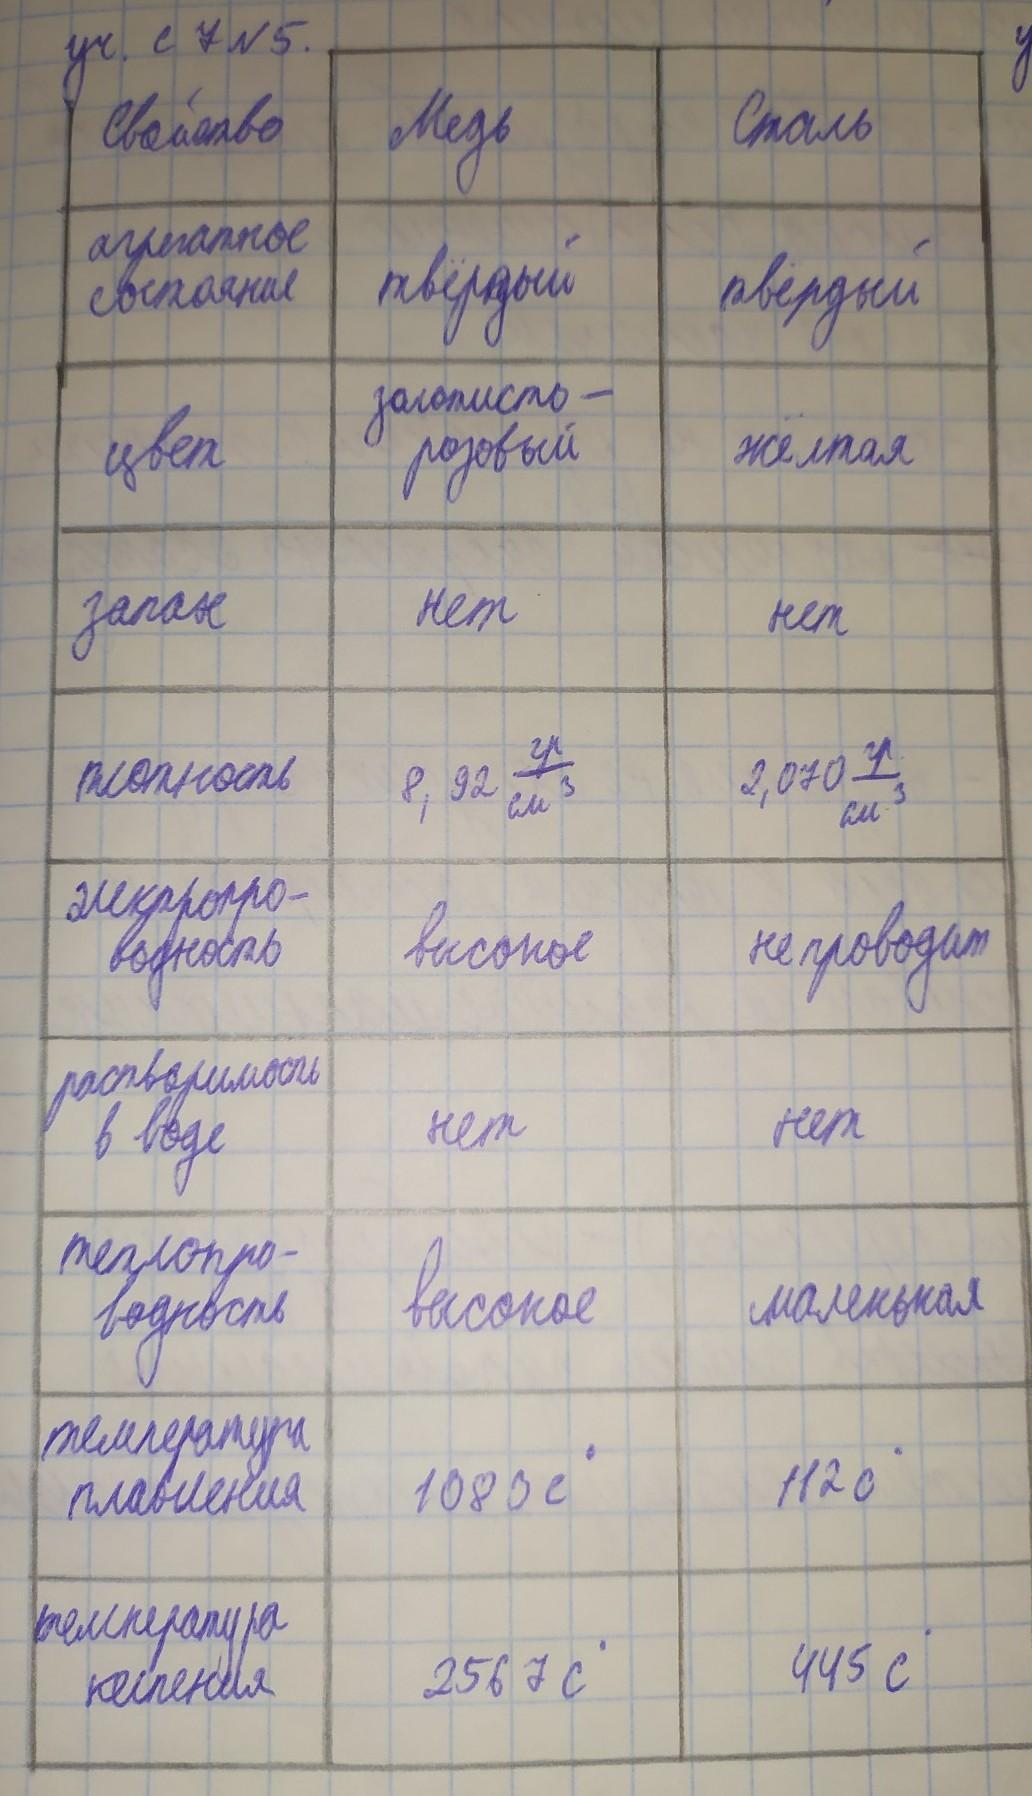 уч. с 7 N 5.
Свойство Медь Сталь
агрегатное
состояние твёрдый твёрдый
золотисто-
цвет розовый жёлтая
запах нет нет
плотность 8,92 гр/см³ 2,070 гр/см³
электропро-
водность высокое не проводит
растворимость
в воде нет нет
теплопро-
водность высокое маленькая
температура
плавления 1083 с° 112 с°
температура
кипения 2567 с° 445 с°